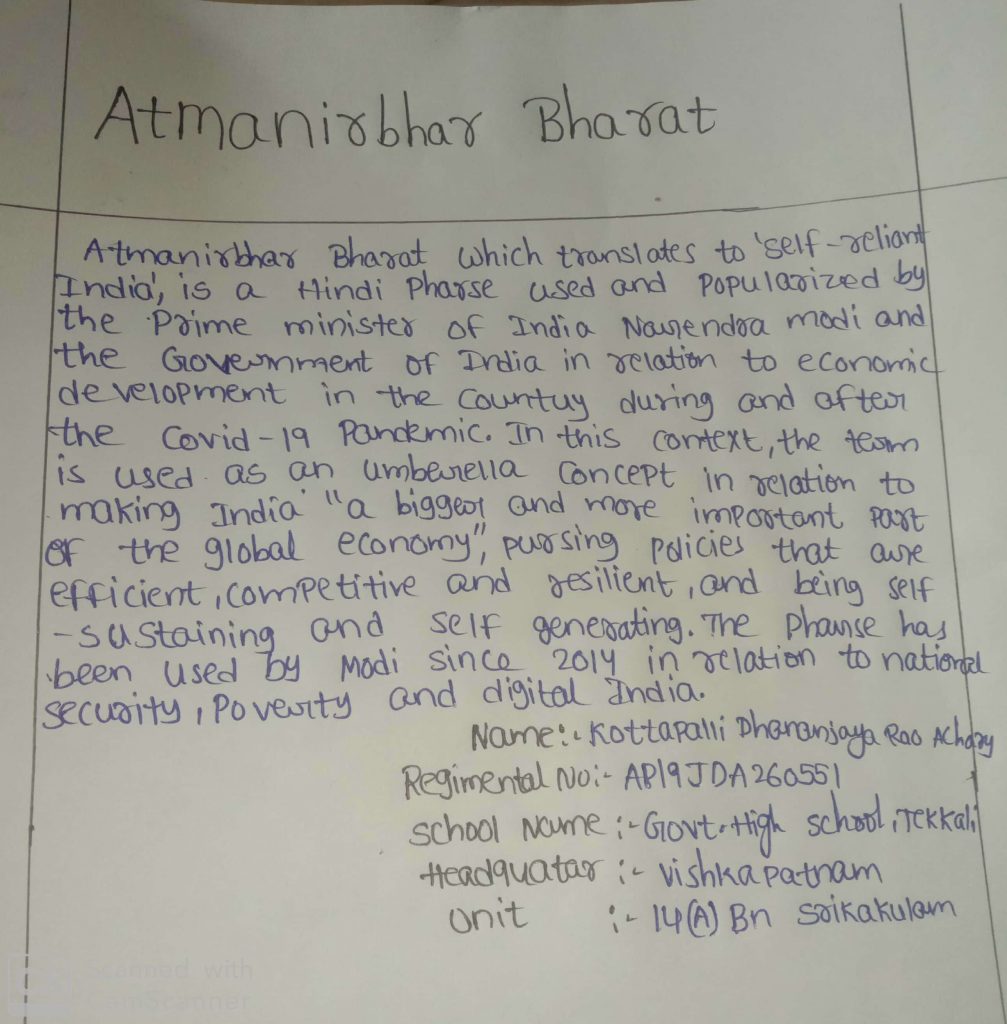 Atmanirbhar Bharat
Atmanirbhar Bharat which translates to 'self-reliant
India', is a Hindi Pharse used and Popularized by
the Prime minister of India Narendra modi and
the Government of India in relation to economic
development in the country during and after
the Covid-19 Pandemic. In this context, the term
is used as an umberella concept in relation to
making India "a bigger and more important part
of the global economy", pursing policies that are
efficient, competitive and resilient, and being self
-sustaining and self generating. The Pharse has
been used by Modi since 2014 in relation to national
security, Poverty and digital India.
Name:- Kottapalli Dhananjaya Rao Achary
Regimental No:- AP19JDA260551
School Name :- Govt. High school, Tekkali
Headquatar :- Vishkapatnam
Unit :- 14(A) Bn Srikakulam
Scanned with
CamScanner